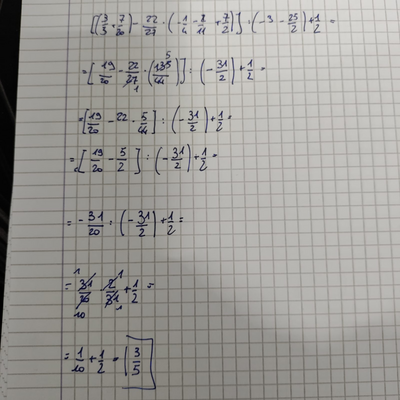 [(3/5 + 7/20) - 22/27 · (-1/4 - 2/11 + 7/2)] : (-3 - 25/2) + 1/2 =
= [19/20 - 22/27 1 · (135 5/44)] : (-31/2) + 1/2 =
= [19/20 - 22 · 5/44] : (-31/2) + 1/2 =
= [19/20 - 5/2] : (-31/2) + 1/2 =
= -31/20 : (-31/2) + 1/2 =
= 1 31/20 10 · 2 1/31 1 + 1/2 =
= 1/10 + 1/2 = 3/5